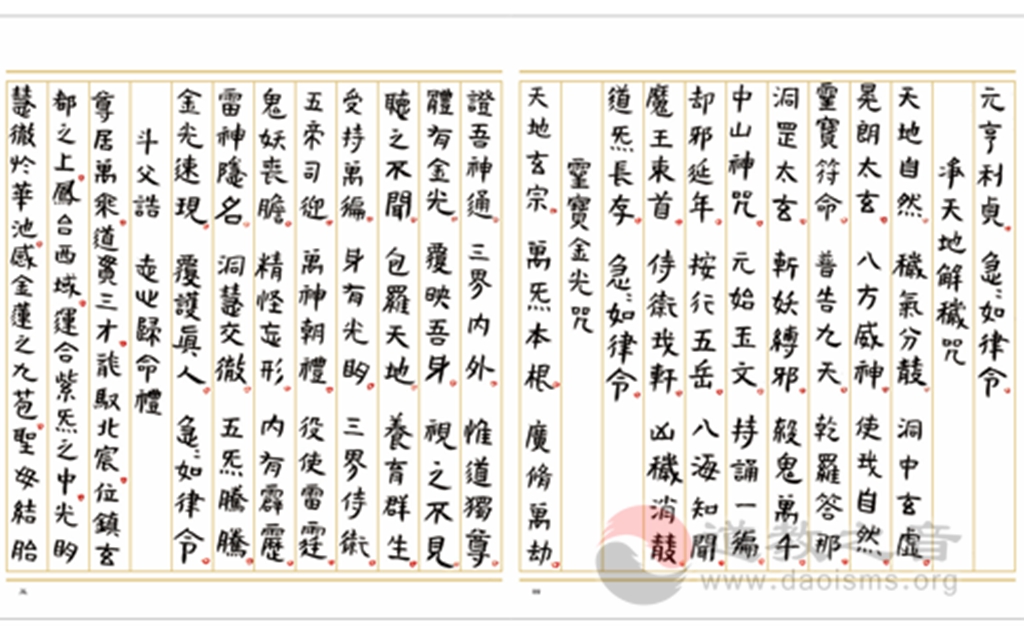 元亨利貞 急急如律令
淨天地解穢咒
天地自然 穢氣分散 洞中玄虛
晃朗太玄 八方威神 使我自然
靈寶符命 普告九天 乾羅答那
洞罡太玄 斬妖縛邪 殺鬼萬千
中山神咒 元始玉文 持誦一遍
却邪延年 按行五岳 八海知聞
魔王束首 侍衛我軒 凶穢消散
道炁長存 急急如律令
靈寶金光咒
天地玄宗 萬炁本根 廣脩萬劫
證吾神通 三界內外 惟道獨尊
體有金光 覆映吾身 視之不見
聽之不聞 包羅天地 養育群生
受持萬遍 身有光明 三界侍衛
五帝司迎 萬神朝禮 役使雷霆
鬼妖喪膽 精怪忘形 內有霹靂
雷神隱名 洞慧交徹 五炁騰騰
金光速現 覆護真人 急急如律令
斗父誥 志心歸命禮
尊居萬象道貫三才龍馭北宸位鎮玄
都之上鳳台西域運合紫炁之中光明
慧徹於華池感金蓮之九苞聖母結胎
道教之音
www.daoisms.org